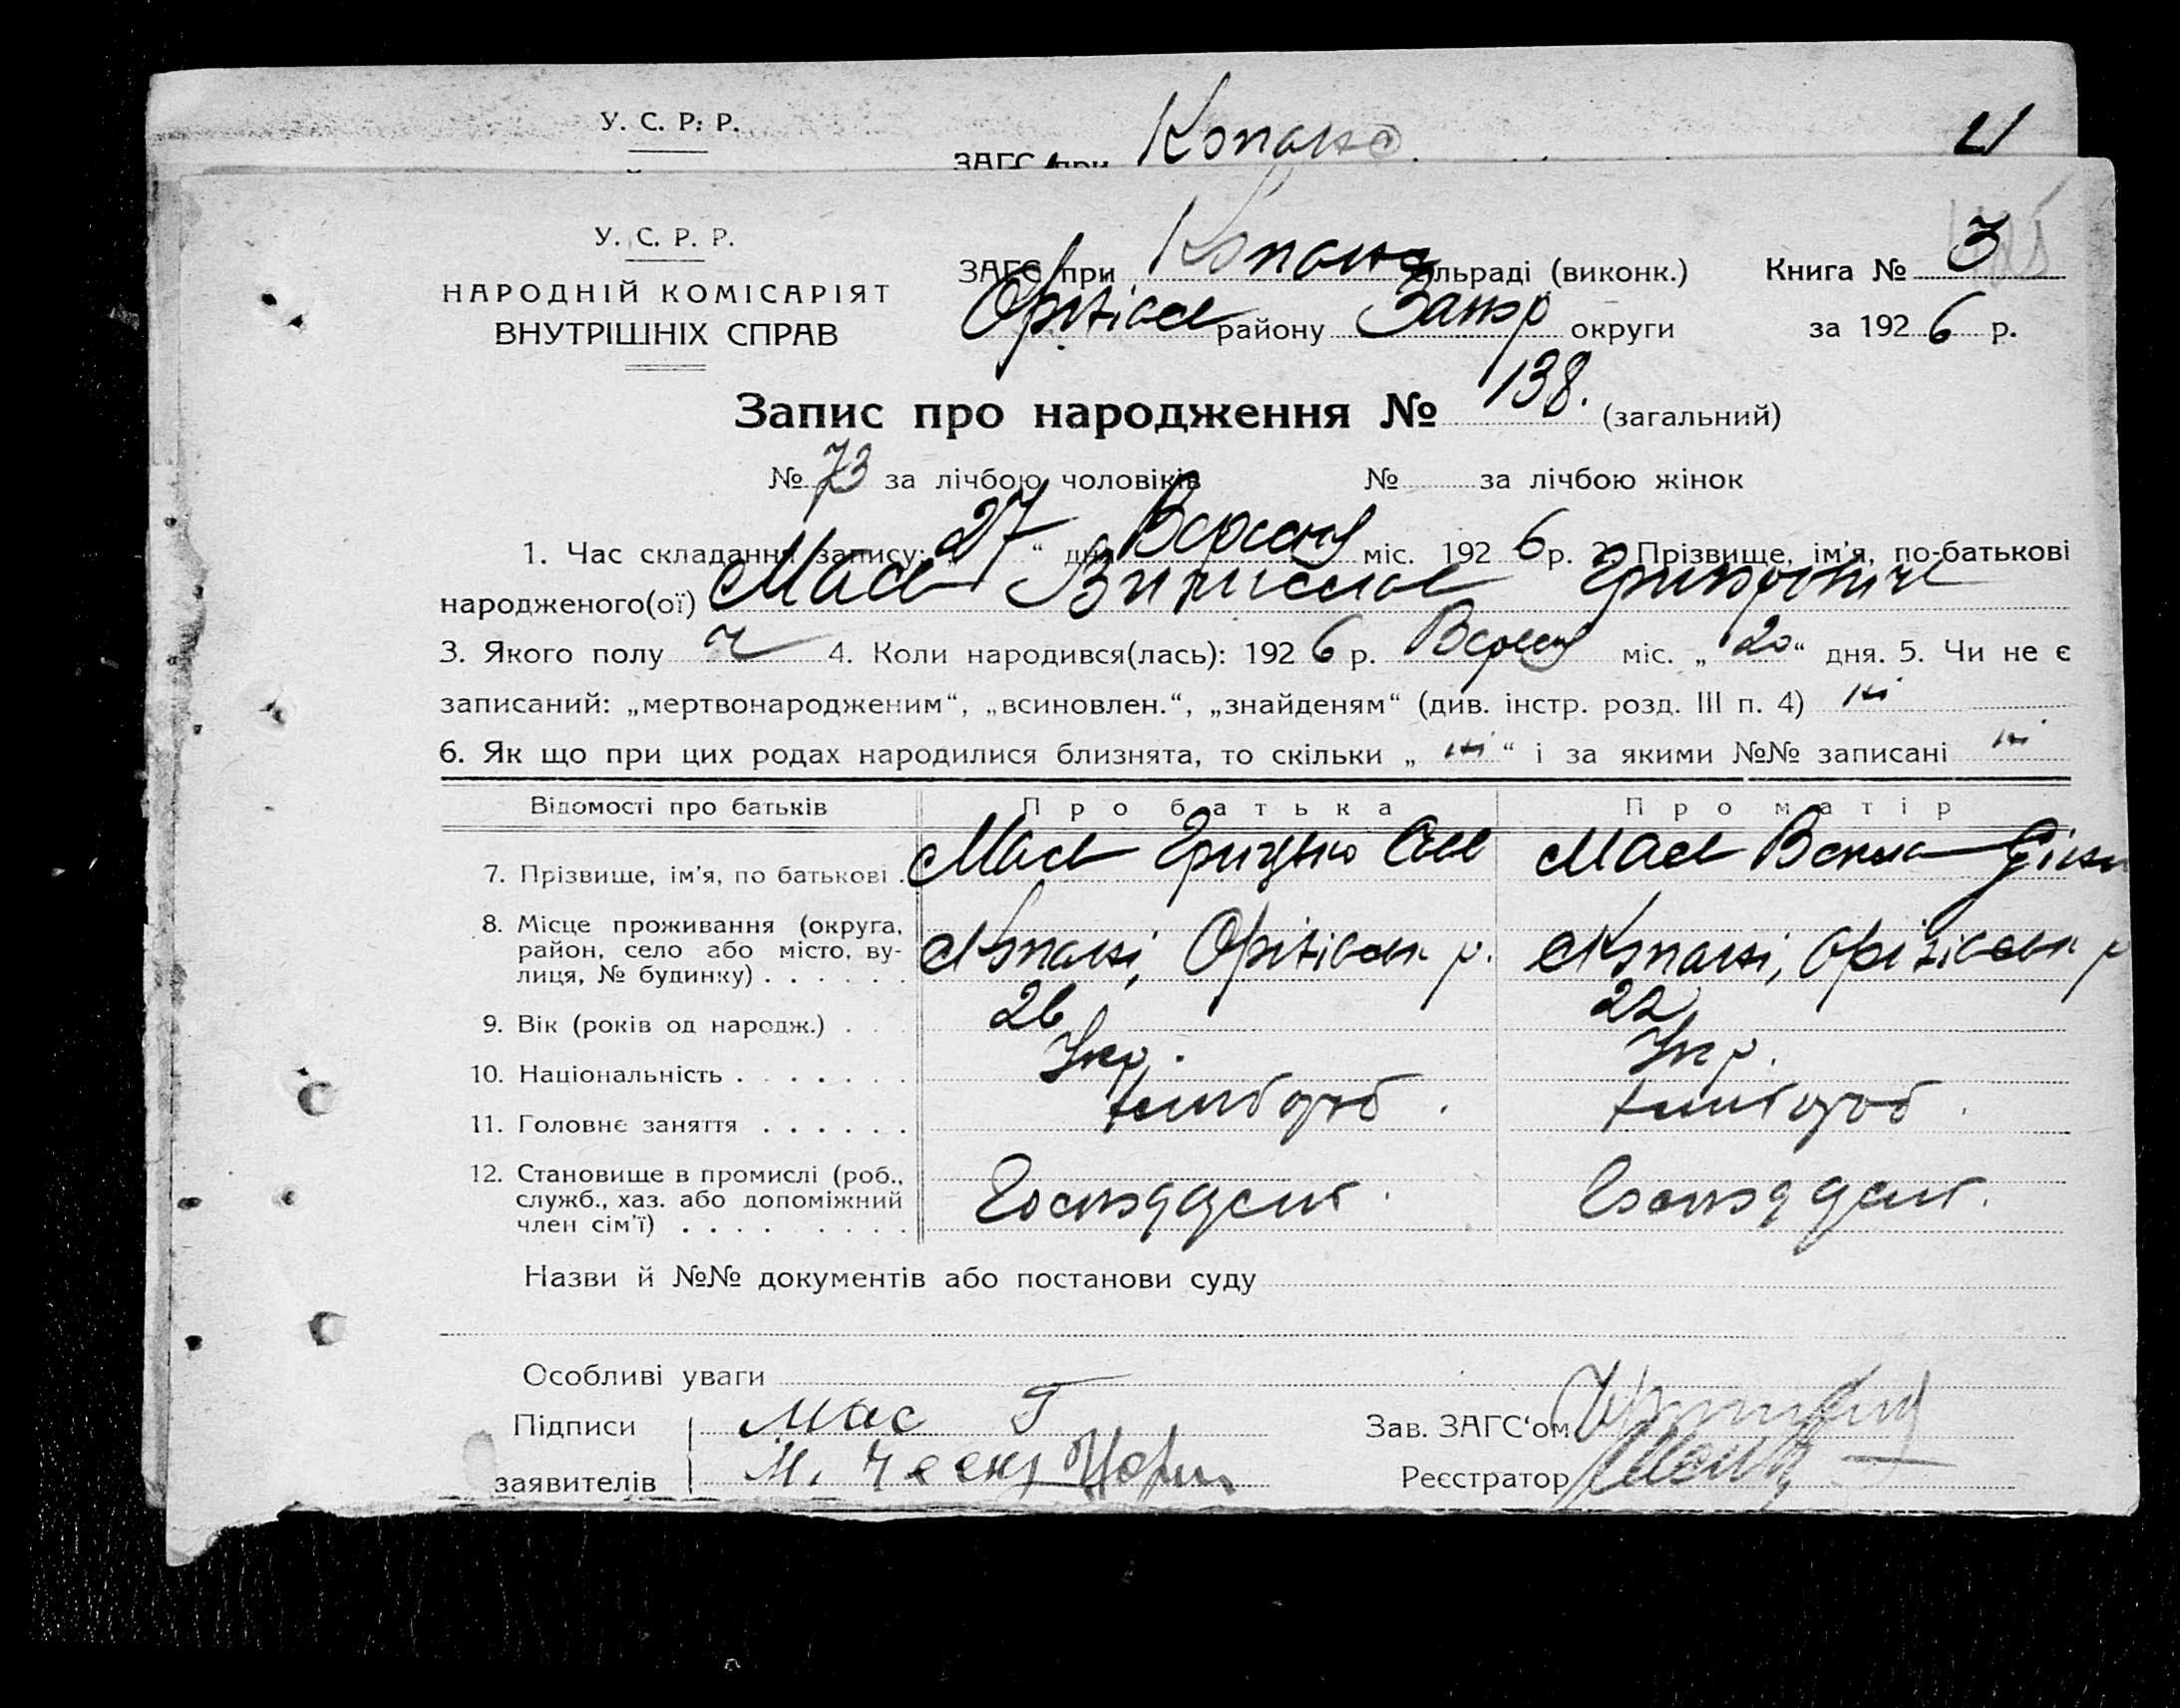 У. С. Р. Р.
ЗАГС при Копана 4
У. С. Р. Р.
НАРОДНІЙ КОМІСАРІЯТ
ВНУТРІШНІХ СПРАВ
ЗАГС при Копана ільраді (виконк.) Книга № 3
Оріхівсь району Запор округи за 1926 р.
Запис про народження № 138. (загальний)
№ 73 за лічбою чоловіків № за лічбою жінок
1. Час складання запису: „27“ дня Вересня міс. 1926 р. 2. Прізвище, ім'я, по-батькові
народженого(ої) Мась Григорович
3. Якого полу ч 4. Коли народився(лась): 1926 р. Вересня міс. „20“ дня. 5. Чи не є
записаний: „мертвонародженим“, „всиновлен.“, „знайденям“ (див. інстр. розд. III п. 4) ні
6. Як що при цих родах народилися близнята, то скільки „ні“ і за якими №№ записані ні
Відомості про батьків Про батька Про матір
7. Прізвище, ім'я, по батькові . Мась Грицько Мась Векла
8. Місце проживання (округа, район, село або місто, вулиця, № будинку) . . . . . . Копані, Оріхівськ р. Копані, Оріхівськ р
9. Вік (років од народж.) . . 26 22
10. Національність . . . . . . . Укр. Укр.
11. Головнє заняття . . . . . . хлібороб. хлібороб.
12. Становище в промислі (роб., служб., хаз. або допоміжний член сім'ї) . . . . . . . . .
Назви й №№ документів або постанови суду
Особливі уваги
Підписи Мас Г Зав. ЗАГС'ом
заявителів М. Реєстратор